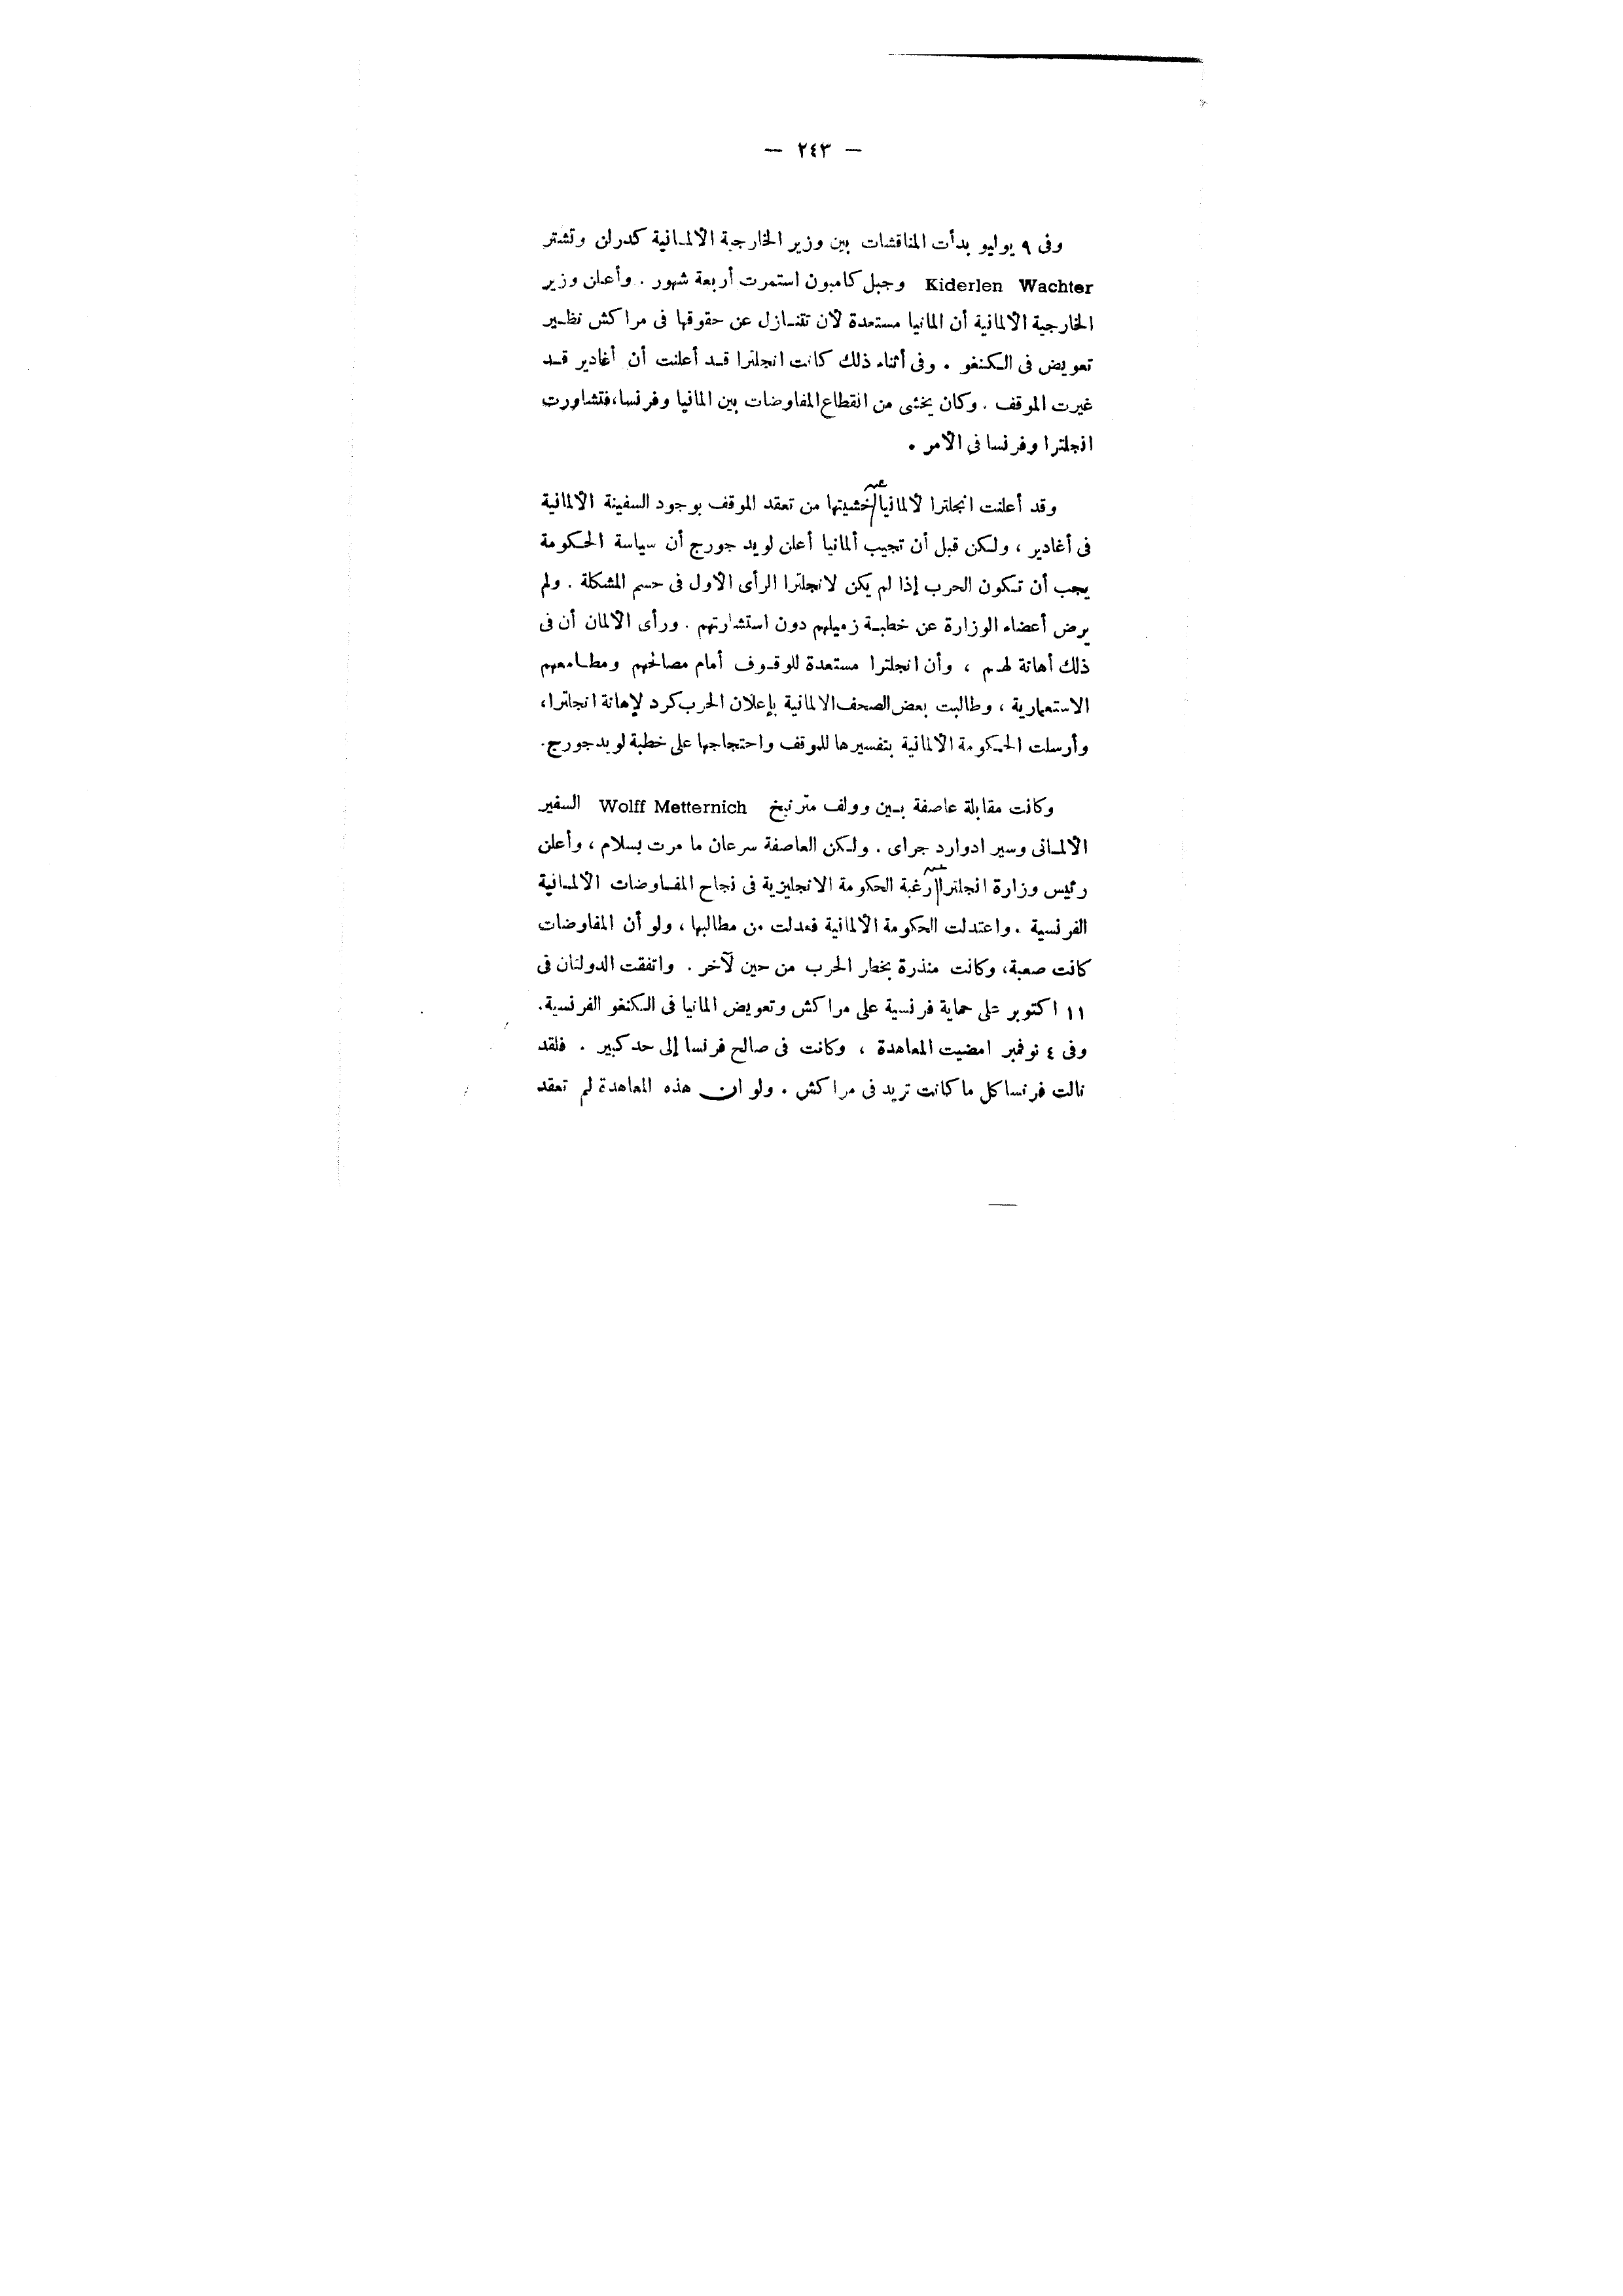 — ٢٤٣ —
وفى ٩ يوليو بدأت المناقشات بين وزير الخارجية الألمانية كدرلن وتشتر
Kiderlen Wachter وجبل كامبون استمرت أربعة شهور . وأعلن وزير
الخارجية الألمانية أن المانيا مستعدة لأن تتنازل عن حقوقها فى مراكش نظير
تعويض فى الكنغو . وفى أثناء ذلك كانت انجلترا قد أعلنت أن أغادير قد
غيرت الموقف . وكان يخشى من انقطاع المفاوضات بين المانيا وفرنسا، فتشاورت
انجلترا وفرنسا فى الأمر .
وقد أعلنت انجلترا لألمانيا عن خشيتها من تعقد الموقف بوجود السفينة الألمانية
فى أغادير ، ولكن قبل أن تجيب ألمانيا أعلن لويد جورج أن سياسة الحكومة
يجب أن تكون الحرب إذا لم يكن لانجلترا الرأى الأول فى حسم المشكلة . ولم
يرض أعضاء الوزارة عن خطبة زميلهم دون استشارتهم . ورأى الألمان أن فى
ذلك أهانة لهم ، وأن انجلترا مستعدة للوقوف أمام مصالحهم ومطامعهم
الاستعمارية ، وطالبت بعض الصحف الالمانية بإعلان الحرب كرد لإهانة انجلترا،
وأرسلت الحكومة الألمانية بتفسيرها للموقف واحتجاجها على خطبة لويد جورج.
وكانت مقابلة عاصفة بين وولف مترنيخ Wolff Metternich السفير
الألمانى وسير ادوارد جراى . ولكن العاصفة سرعان ما مرت بسلام ، وأعلن
رئيس وزارة انجلترا عن رغبة الحكومة الانجليزية فى نجاح المفاوضات الألمانية
الفرنسية . واعتدلت الحكومة الألمانية فعدلت من مطالبها ، ولو أن المفاوضات
كانت صعبة، وكانت منذرة بخطر الحرب من حين لآخر . واتفقت الدولتان فى
١١ اكتوبر على حماية فرنسية على مراكش وتعويض المانيا فى الكنغو الفرنسية.
وفى ٤ نوفمبر امضيت المعاهدة ، وكانت فى صالح فرنسا إلى حد كبير . فلقد
نالت فرنسا كل ما كانت تريد فى مراكش . ولو ان هذه المعاهدة لم تعقد